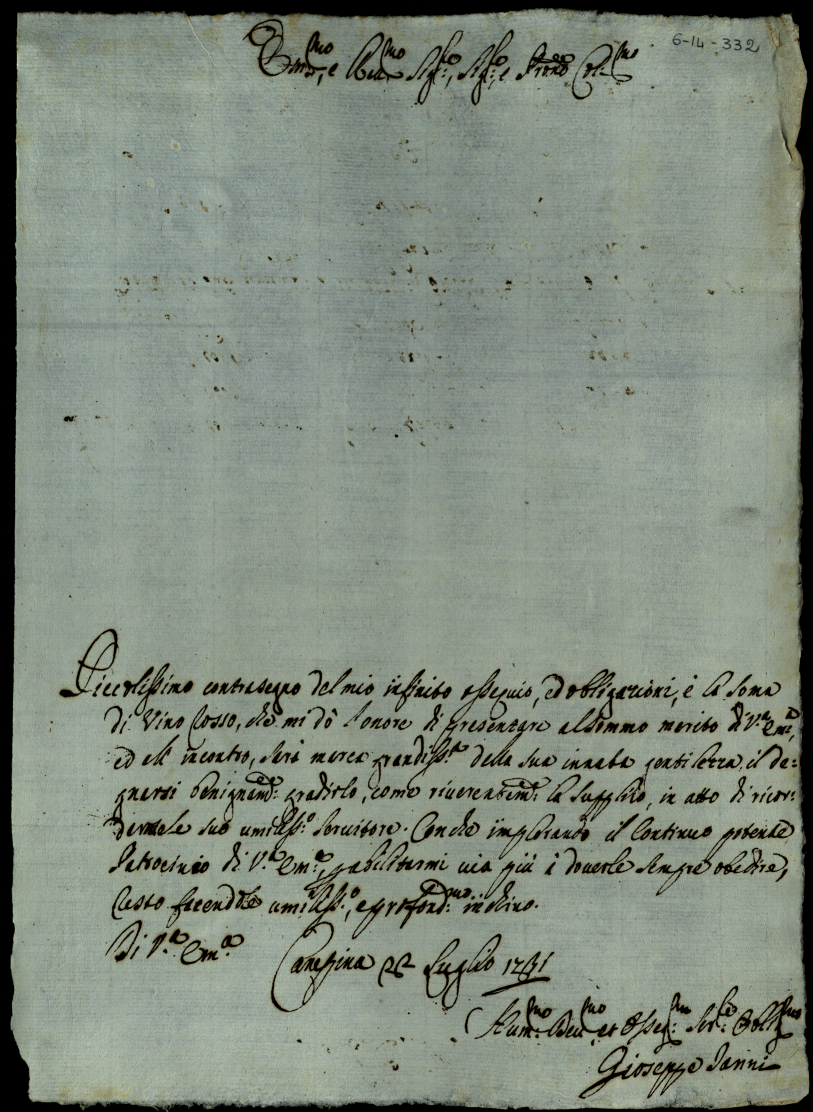 6-14-332
Em.mo, e Rev.mo Sig.re, Sig.re, e P̃rone Col.mo
Piccolissimo contrasegno del mio infinito ossequio, ed obligazioni, è la soma
di Vino rosso, che mi dò l'onore di presentare al sommo merito di V.a Em.a,
ed all' incontro, serà mercè grandiss.a della sua innata gentilezza il de=
gnarsi benignam.te gradirlo, come riverentem.te la supplico, in atto di ricor=
dermele suo umiliss.o servitore. Con che implorando il continuo potente
Patrocinio di V.a Em.a, p abilitarmi via più à doverle sempre obedire,
resto facendole umiliss.o, e profond.mo inchino.
Di V.a Em.a
Canepina 22 Luglio 1741
H̃um.mo Dev.mo et Osseq.mo Ser.re Obblig.mo
Gioseppe Janni